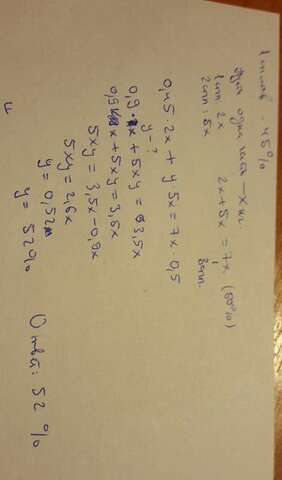 1 сплав - 45%
одна часть - x кг
1 спл: 2x
2 спл: 5x
2x + 5x = 7x (50%)
0,45 · 2x + y 5x = 7x · 0,5
y - ?
0,9 x + 5xy = 3,5x
0,9 x + 5xy = 3,5x
5xy = 3,5x - 0,9x
5xy = 2,6x
y = 0,52
y = 52%
Ответ: 52 %